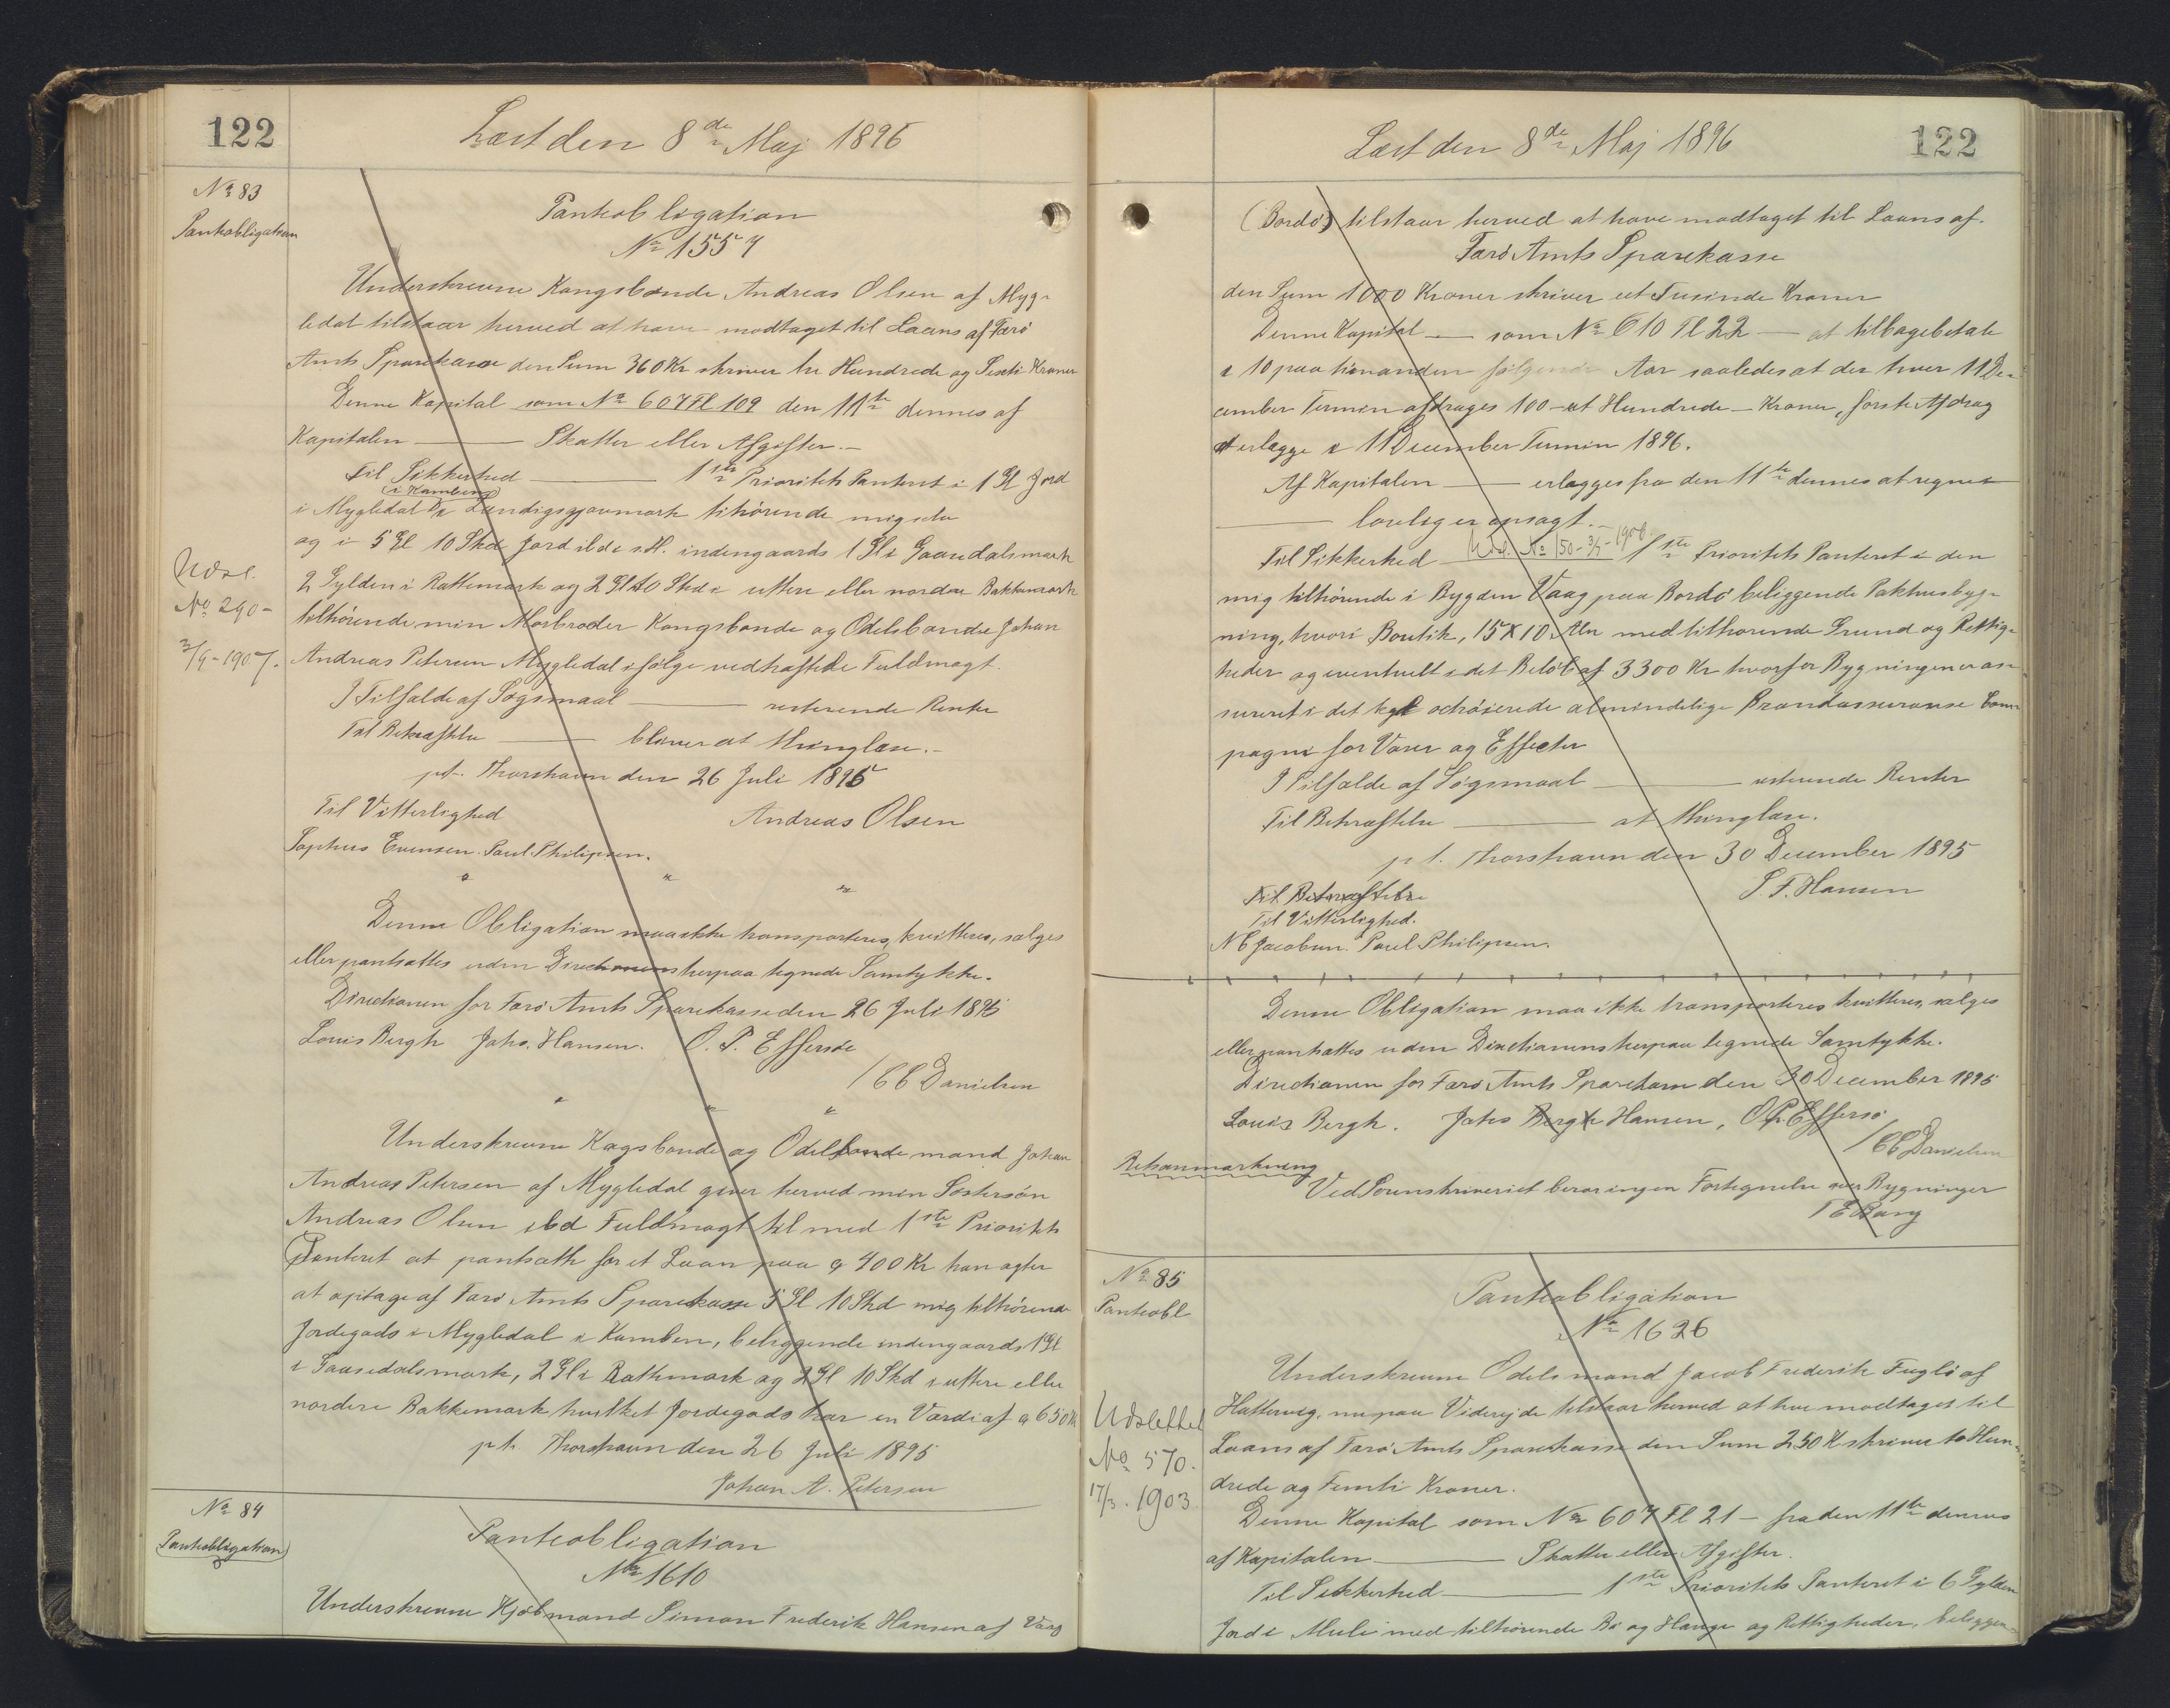 122
Læst den 8de Maj 1896
No 83
Panteobligation
Panteobligation
No 1557
Underskrevne Kongsbonde Andreas Olsen af Myg-
ledal tilstaar herved at have modtaget til Laans af Færø
Amts Sparekasse den Sum 360 Kr skriver tre Hundrede og Sexti Kroner
Denne Kapital som No 607 Fl 109 den 11te dennes af
Kapitalen ——— Skatter eller Afgifter.—
Til Sikkerhed ——— 1ste Prioritets Panteret i 1 Gl Jord
(i Kamben)
i Mygledal tilhørende mig selv
og i 5 Gl 10 Skd Jord indengaards 1 Gl i Gaasedalsmark
2 Gylden i Rattemark og 2 Gl 10 Skd i uttere eller nordere Bakkemark
tilhørende min Morbroder Kongsbonde og Odelsbonde Johan
Andreas Petersen Mygledal ifølge vedhæftede Fuldmagt.
Udsl.
No 290-
2/9-1907.
I Tilfælde af Søgsmaal ——— resterende Renter
Til Bekræftelse ——— bliver at thinglæse.-
pt. Thorshavn den 26 Juli 1895
Til Vitterlighed
Andreas Olsen
Sophus Evensen. Paul Philipsen.
" " "
Denne Obligation maa ikke transporteres, kvitteres, sælges
eller pantsættes uden Directionens herpaa tegnede Samtykke.
Directionen for Færø Amts Sparekasse den 26 Juli 1895
Louis Bergh Johs. Hansen. O. P. Effersøe
/CC Danielsen
" " "
Underskrevne Kogsbonde og Odelsbonde mand Johan
Andreas Petersen af Mygledal giver herved min Søstersøn
Andreas Olsen ibd Fuldmagt til med 1ste Prioritets
Panteret at pantsætte for et Laan paa 400 Kr han agter
at optage af Færø Amts Sparekasse 5 Gl 10 Skd mig tilhørende
Jordegods i Mygledal i Kamben, beliggende indengaards 1 Gl
i Gaasedalsmark, 2 Gl i Rattemark og 2 Gl 10 Skd i uttere eller
nordere Bakkemark hvilket Jordegods har en Værdi af 650 Kr
pt. Thorshavn den 26 Juli 1895
Johan A. Petersen
No 84
Panteobligation
Panteobligation
No 1610
Underskrevne Kjøbmand Simon Frederik Hansen af Vaag
Læst den 8de Maj 1896
122
(Bordø) tilstaar herved at have modtaget til Laans af
Færø Amts Sparekasse
den Sum 1000 Kroner skriver et Tusinde Kroner
Denne Kapital — som No 610 Fl 22 — at tilbagebetale
i 10 paa hinanden følgende Aar saaledes at der hver 11 De-
cember Termin afdrages 100 - et Hundrede - Kroner, første Afdrag
at erlægge i 11 December Termin 1896.
Af Kapitalen —— erlægges fra den 11te dennes at regne
——— lovlig er opsagt.-
Udsl. No 150-3/7-1906.
Til Sikkerhed ——— 1ste Prioritets Panteret i den
mig tilhørende i Bygden Vaag paa Bordø beliggende Pakhusbyg-
ning, hvori Boutik, 15 X 10 Aln med tilhørende Grund og Rettig-
heder og eventuelt i det Beløb af 3300 Kr hvorfor Bygningen er as-
sureret i det kgl octroierede almindelige Brandassurance Com-
pagni for Varer og Effecter
I Tilfælde af Søgsmaal ——— resterende Renter
Til Bekræftelse ——— at thinglæse.
pt. Thorshavn den 30 December 1895
Til Bekræftelse
S. F. Hansen
Til Vitterlighed.
N C Jacobsen. Paul Philipsen.
Denne Obligation maa ikke transporteres kvitteres, sælges
eller pantsættes uden Directionens herpaa tegnede Samtykke.
Directionen for Færø Amts Sparekasse den 30 December 1895
Louis Bergh. Johs Bergh Hansen, O. P. Effersø
/CC Danielsen
Retsanmærkning
Ved Sorenskriveriet beror ingen Fortegnelse over Bygninger
No 85
Panteobl
Panteobligation
No 1626
Underskrevne Odelsmand Jacob Frederik Fuglø af
Hattervig, nu paa Viderejde tilstaar herved at have modtaget til
Laans af Færø Amts Sparekasse den Sum 250 K skriver to Hun-
drede og Femti Kroner.
Udslettet
No 570.
17/3.1903
Denne Kapital som No 607 Fl 21 — fra den 11te dennes
af Kapitalen ——— Skatter eller Afgifter.
Til Sikkerhed ——— 1ste Prioritets Panteret i 6 Gylden
Jord i Muli med tilhørende Bø og Hauge og Rettigheder, beliggen-